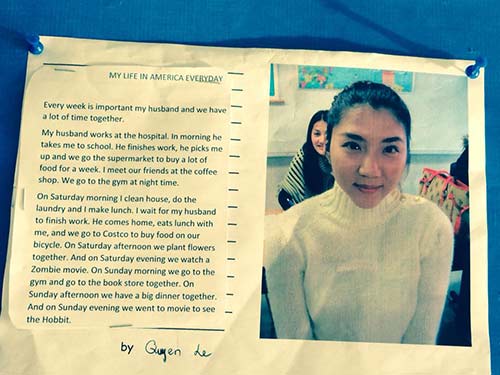 MY LIFE IN AMERICA EVERYDAY
Every week is important my husband and we have
a lot of time together.
My husband works at the hospital. In morning he
takes me to school. He finishes work, he picks me
up and we go the supermarket to buy a lot of
food for a week. I meet our friends at the coffee
shop. We go to the gym at night time.
On Saturday morning I clean house, do the
laundry and I make lunch. I wait for my husband
to finish work. He comes home, eats lunch with
me, and we go to Costco to buy food on our
bicycle. On Saturday afternoon we plant flowers
together. And on Saturday evening we watch a
Zombie movie. On Sunday morning we go to the
gym and go to the book store together. On
Sunday afternoon we have a big dinner together.
And on Sunday evening we went to movie to see
the Hobbit.
by Quyen Le